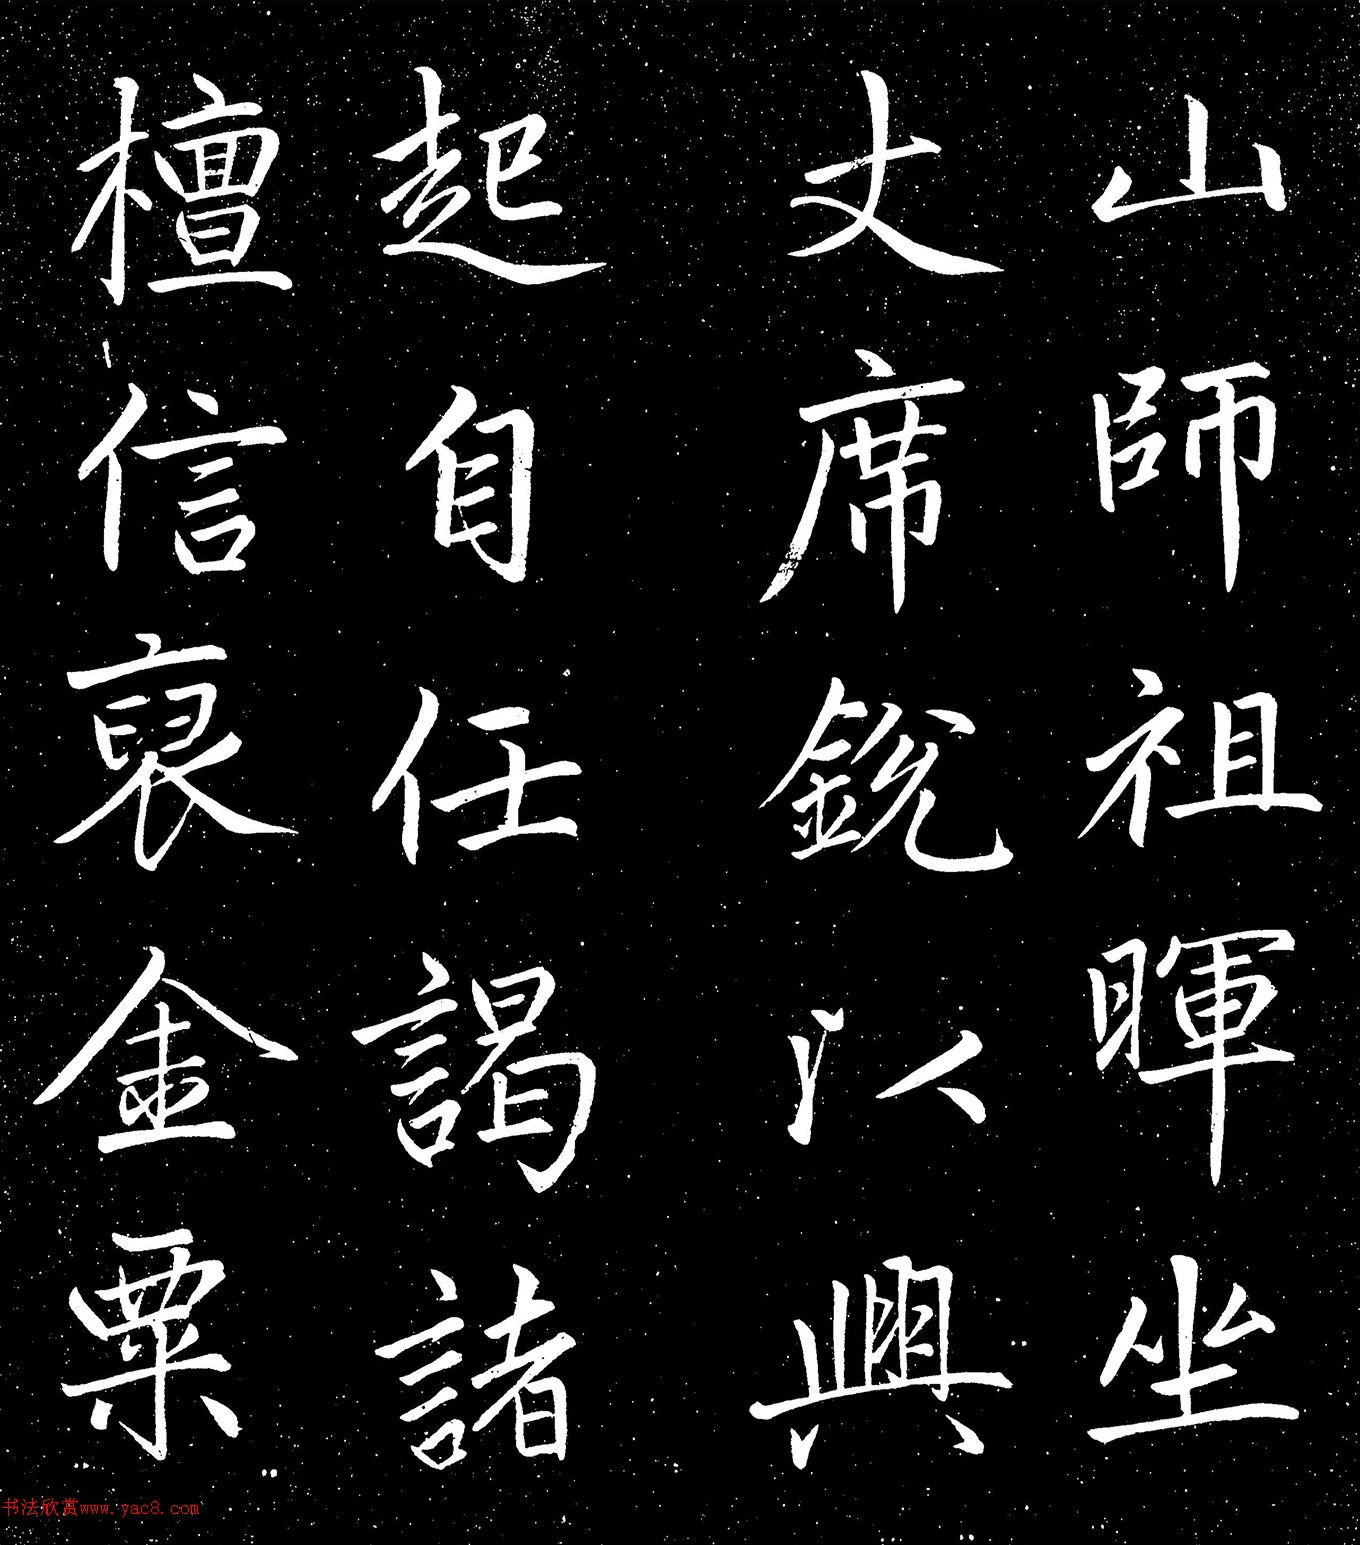 山師祖暉坐
丈席銳以興
起自任謁諸
檀信裒金粟
书法欣赏www.yac8.com